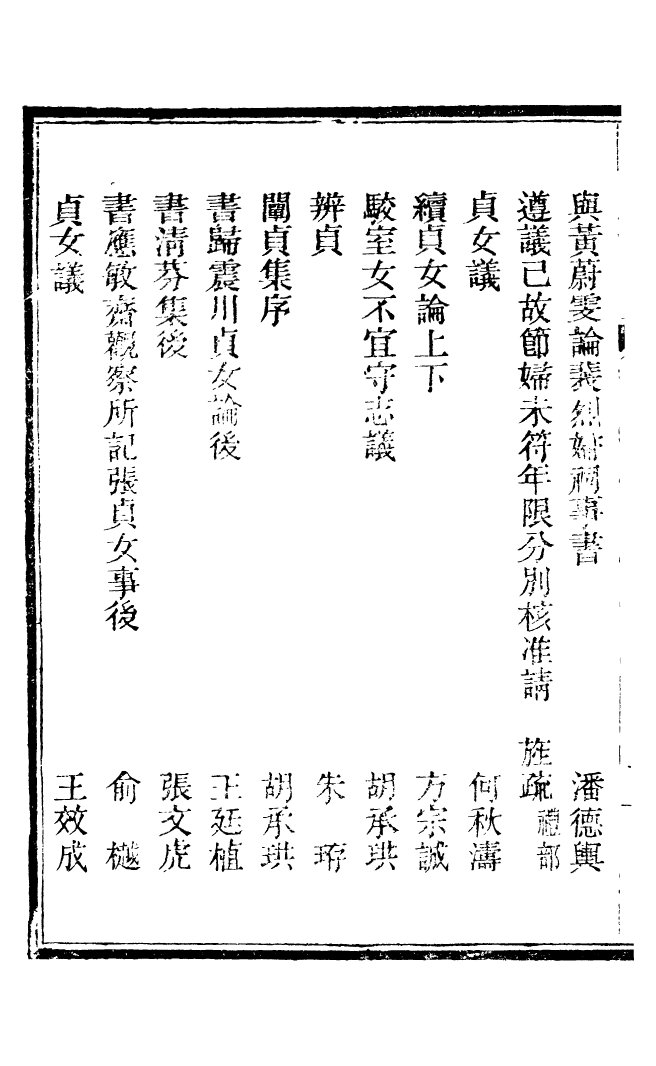 與黃蔚雯論裴烈婦祠事書　潘德輿
遵議已故節婦未符年限分別核准請　旌疏　禮部
貞女議　何秋濤
續貞女論上下　方宗誠
駮室女不宜守志議　胡承珙
辨貞　朱珔
闡貞集序　胡承珙
書歸震川貞女論後　王廷植
書清芬集後　張文虎
書應敏齋觀察所記張貞女事後　俞樾
貞女議　王效成